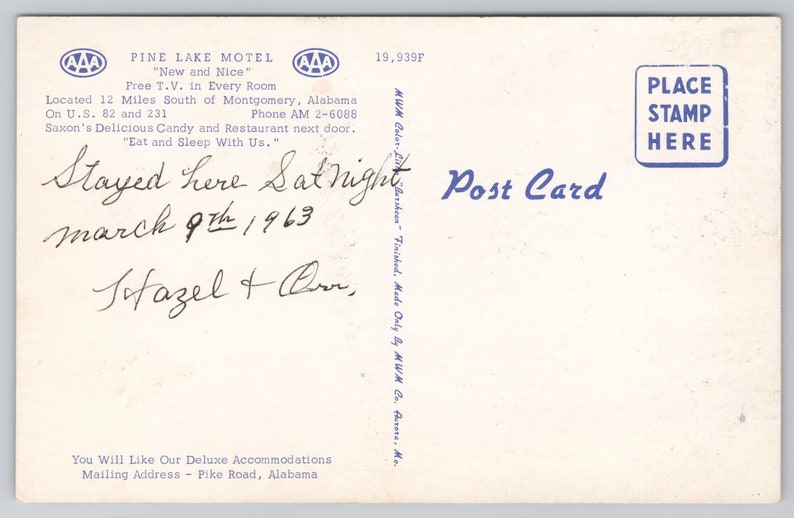 AAA PINE LAKE MOTEL AAA
"New and Nice"
Free T.V. in Every Room
Located 12 Miles South of Montgomery, Alabama
On U.S. 82 and 231 Phone AM 2-6088
Saxon's Delicious Candy and Restaurant next door.
"Eat and Sleep With Us."
Stayed here Sat night
march 9th 1963
Hazel + Orr,
You Will Like Our Deluxe Accommodations
Mailing Address - Pike Road, Alabama
19,939F
MWM Color-Litho "Aursheen" Finished, Made Only By MWM Co, Aurora, Mo.
Post Card
PLACE
STAMP
HERE